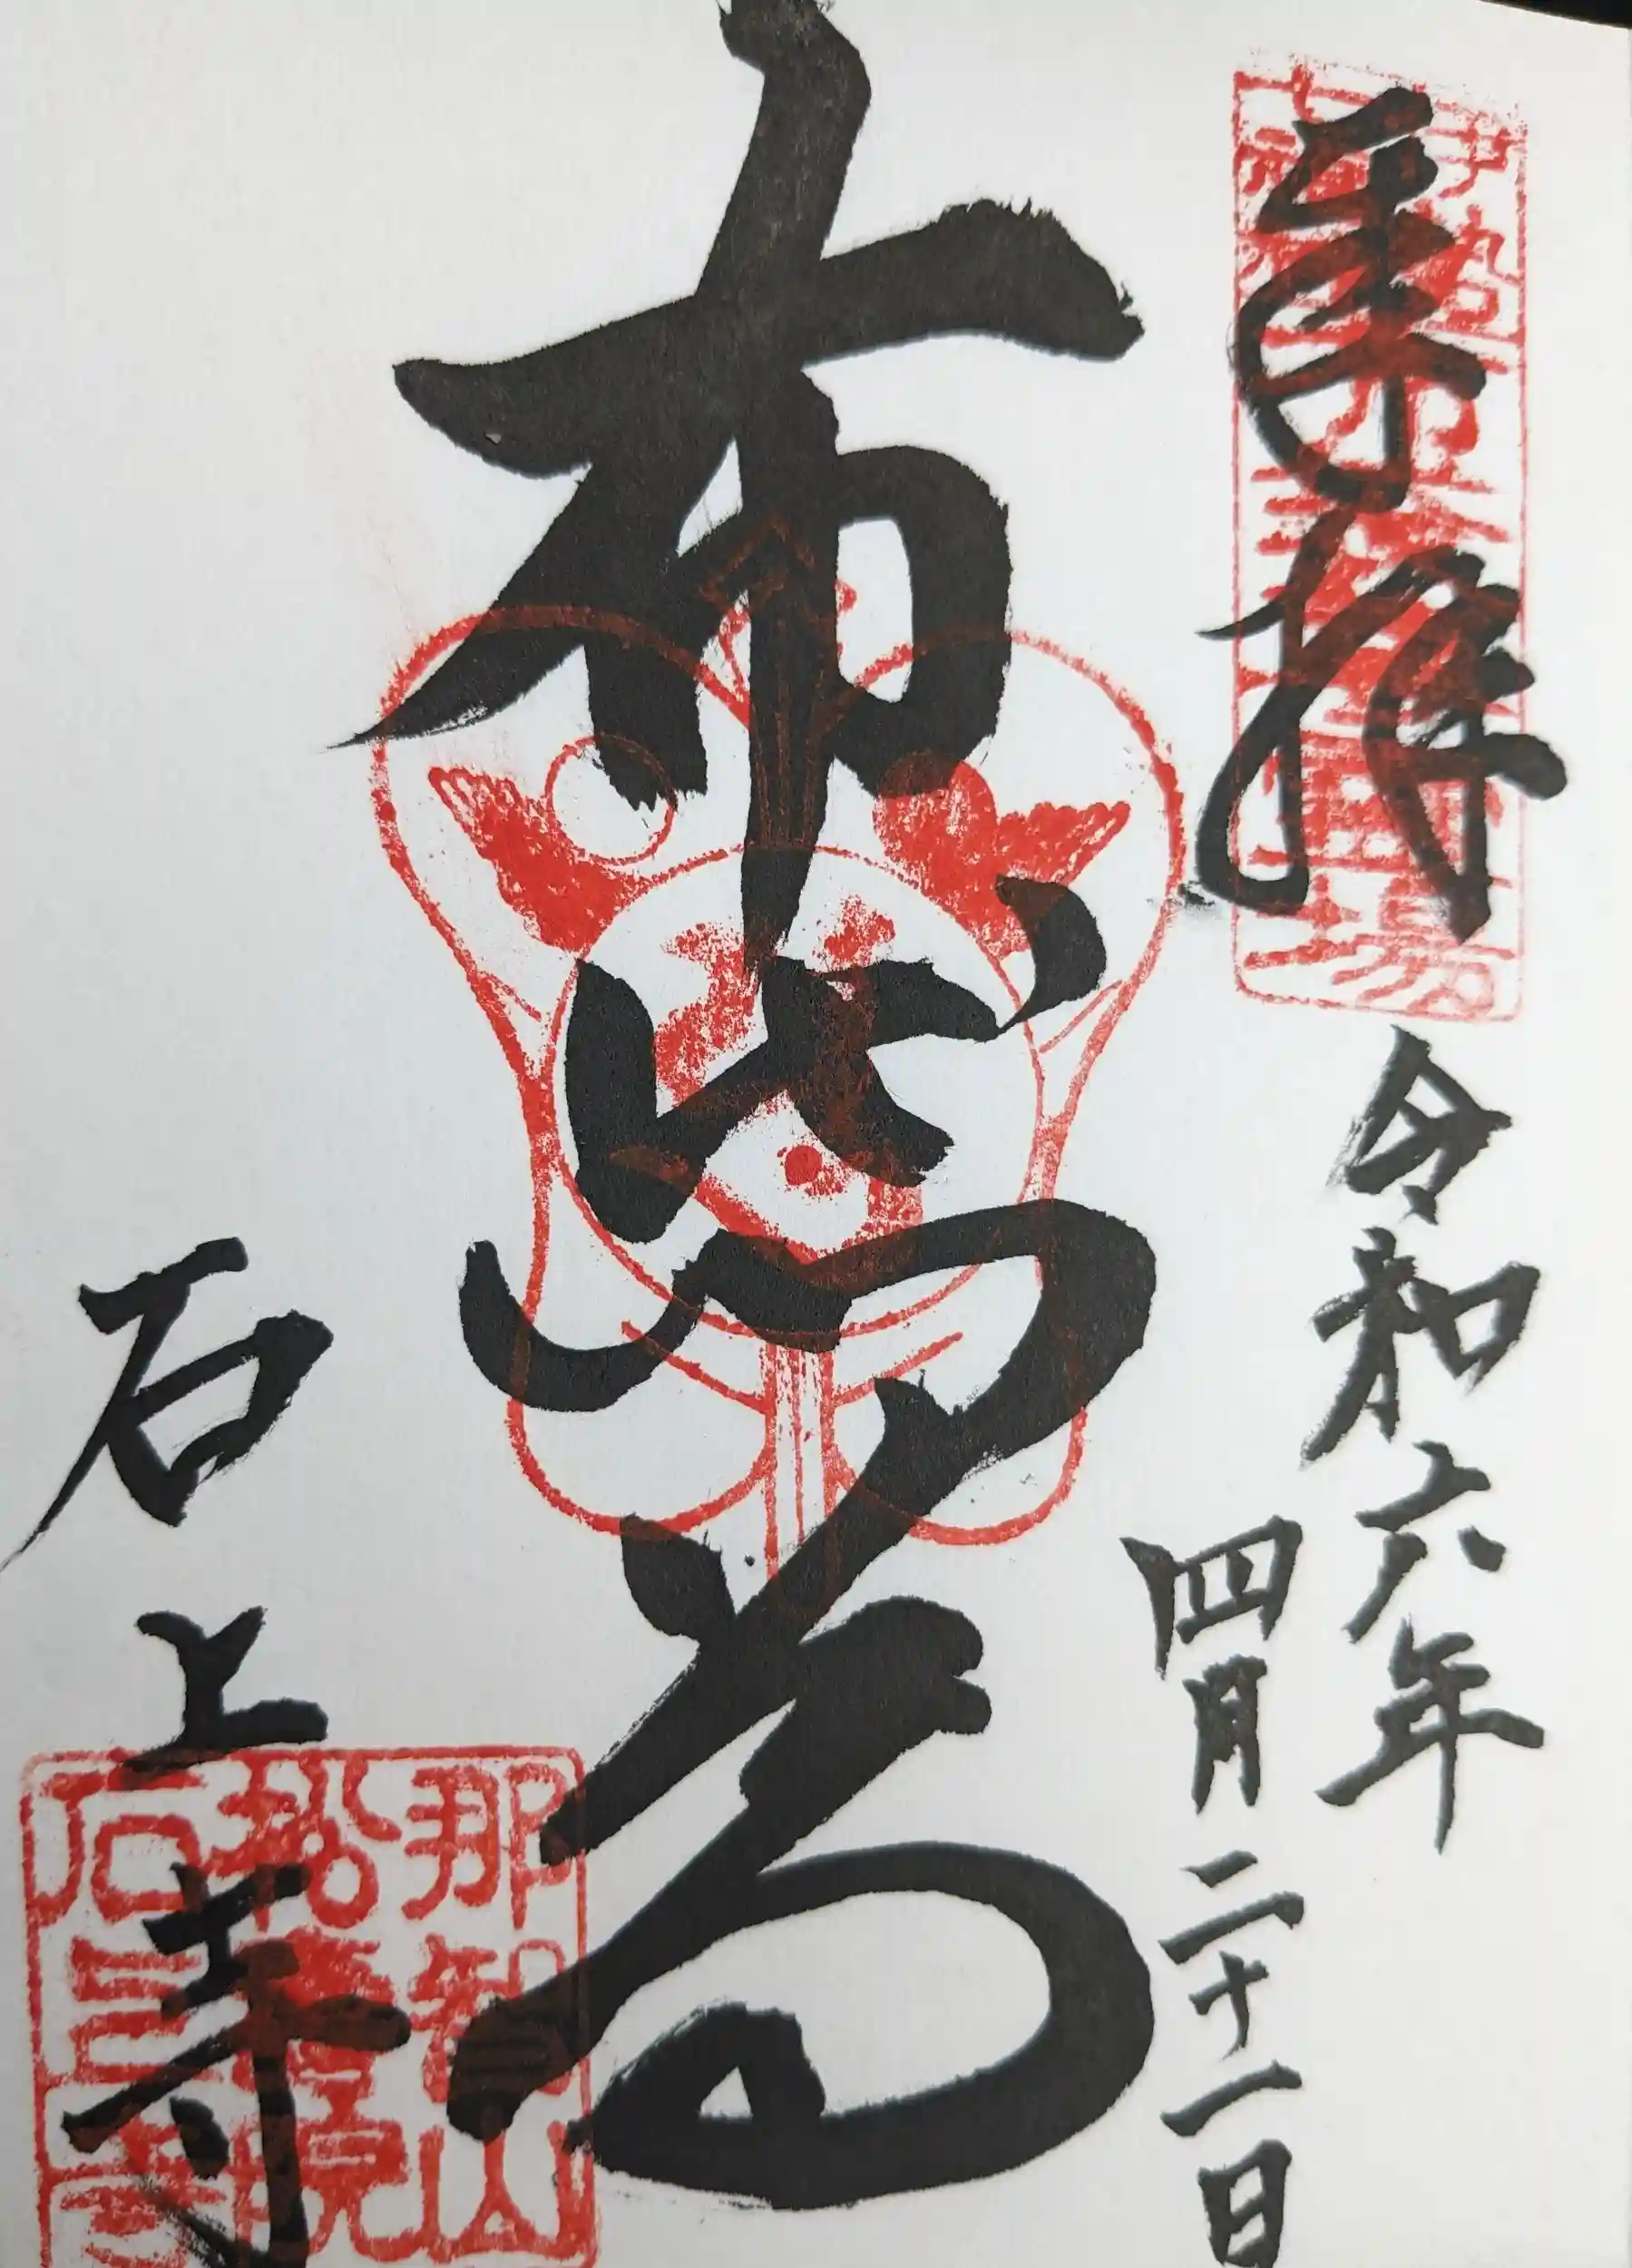 奉拝
令和六年
四月二十一日
布袋尊
石上寺
那智山